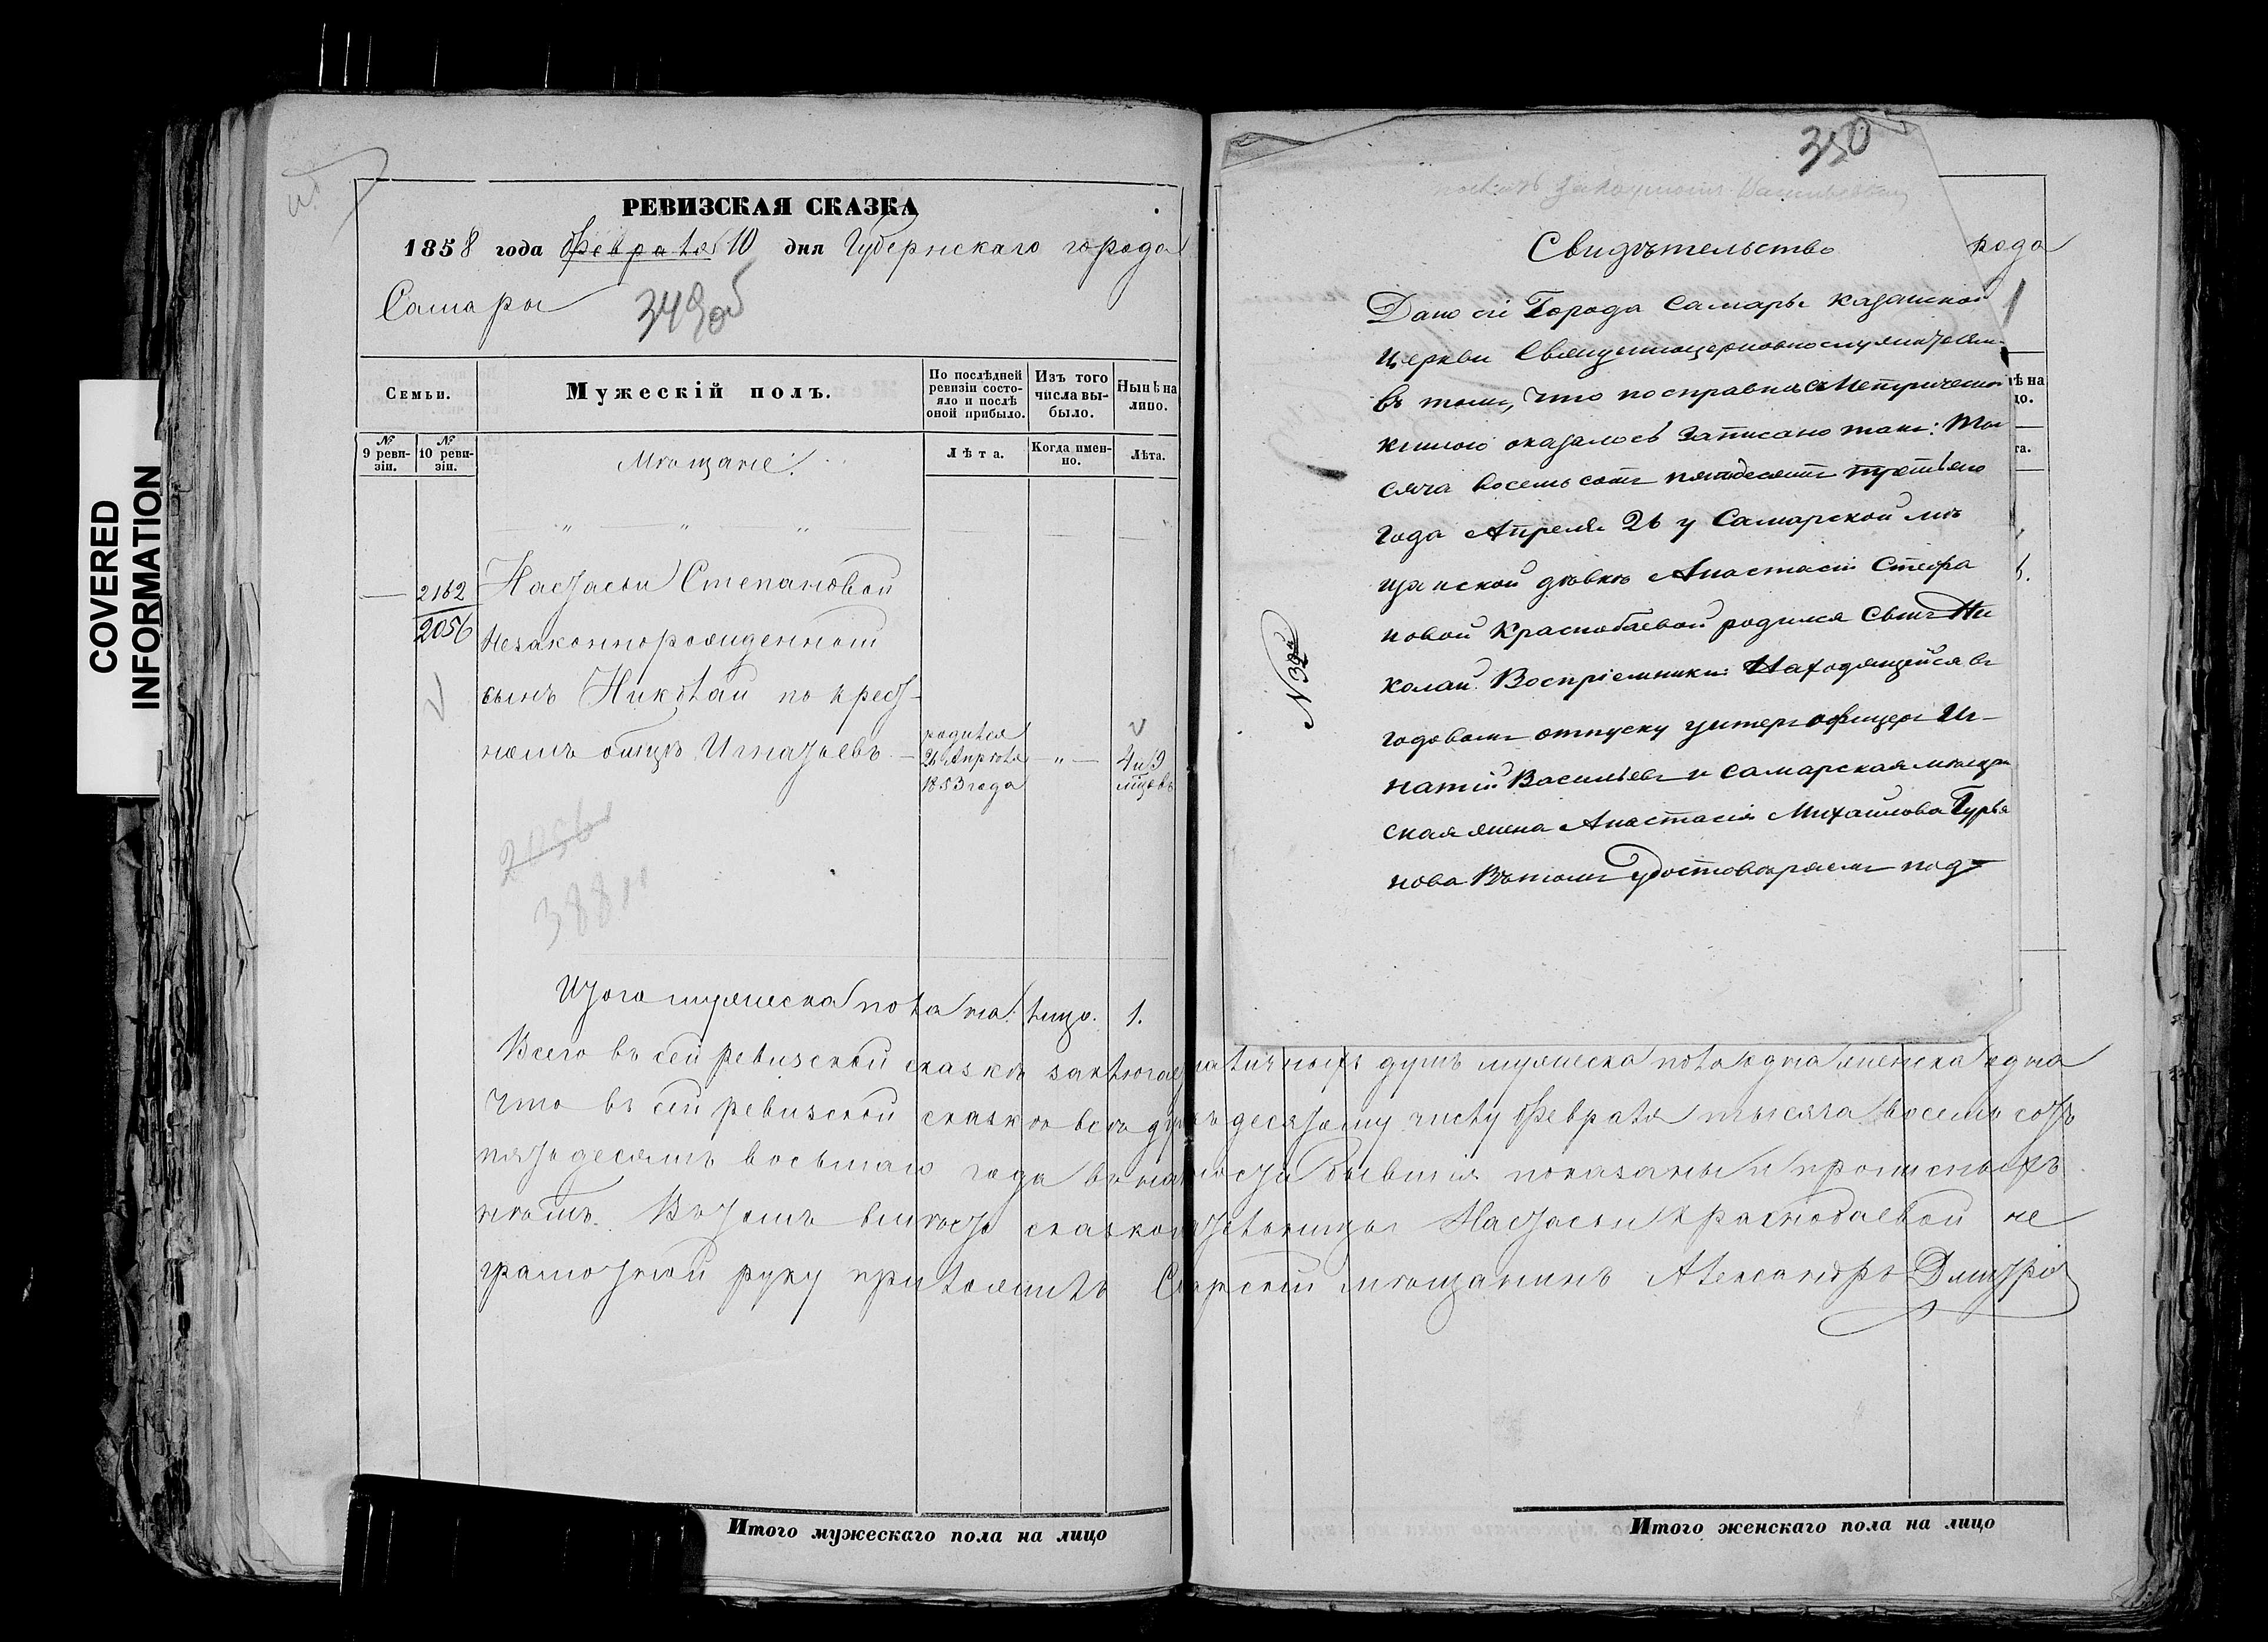 COVERED
INFORMATION
РЕВИЗСКАЯ СКАЗКА
1858 года Февраля 10 дня Губернскаго города
Самары
349 об
Семьи.
Мужескій полъ.
По послѣдней ревизіи состо-
яло и послѣ
оной прибыло.
Изъ того
числа вы-
было.
Нынѣ на
лицо.
№ 9 реви-
зіи.
№ 10 реви-
зіи.
Мѣщане:
Лѣта.
Когда имен-
но.
Лѣта.
2162
2056
Настасьи Степановой
незаконнорожденной
сынъ Николай по крест-
номъ отцѣ Игнатьевъ
родился
26 Апрѣля
1853 года
4 и 9
мѣцовъ
2056
388
Итого мужеска пола на лицо. 1.
Всего въ сей ревизской сказкѣ заключае наличныхъ душъ мужеска пола одна женска одна
Что въ сей ревизской сказкѣ всѣ къ десятому числу Февраля тысяча восемь сотъ
пятьдесятъ восьмаго года въ на ности бывшія показаны и прописныхъ
нѣтъ. Въ томъ вмѣсто сказко Настасьи Краснобаевой не
грамотной руку приложилъ мѣщанинъ Александръ Дмитріе
Итого мужескаго пола на лицо
350
Свидѣтельство
рода
Дано сіе Города Самары Казанской
Церкви Священноцерковнослужителям
въ томъ, что по справкѣ с Метрической
книгою оказалось записано такъ: Ты
сяча восемь сотъ пятдесятъ третьяго
года Апреля 26 у Самарской мѣ
щанской дѣвкѣ Анастасіи Стефа
новой Краснобаевой родился сынъ Ни
колай. Воспріемники: Находящейся въ
годовомъ отпуску унтеръ офицеръ Иг-
натій Васильевъ и Самарская мѣщан
ская жена Анастасія Михайлова Гурья
нова Въ томъ удостовѣряемъ под
ѣ на
цо.
та.
Итого женскаго пола на лицо